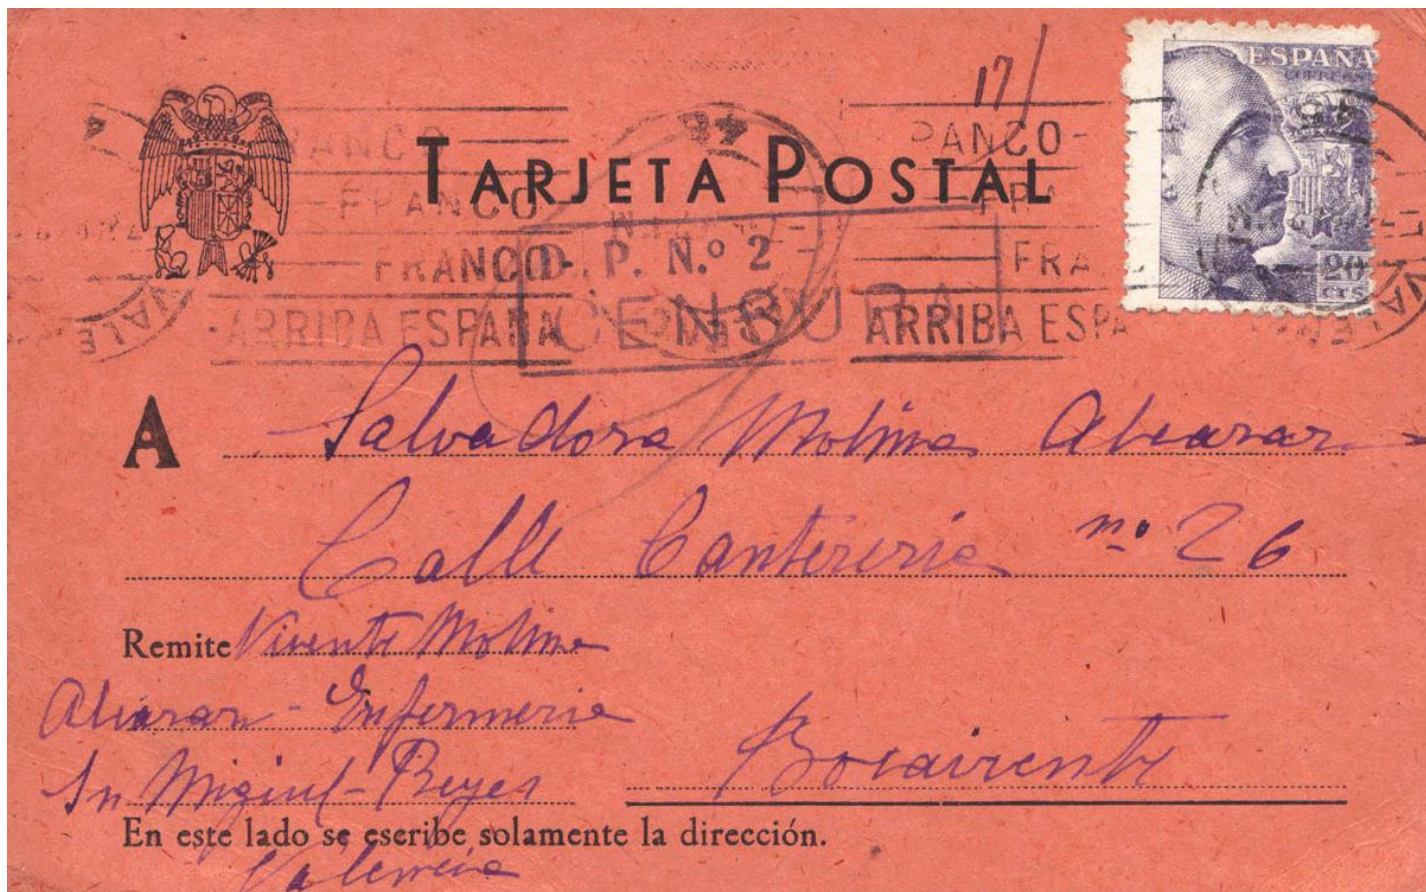 17/
ESPAÑA
CORREOS
20
CTS
TARJETA POSTAL
FRANCO-
-FRANCO
FRANCO-
-ARRIBA ESPAÑA
PANCO-
FRA
ARRIBA ESPA
P. N.º 2
CENSURA
A Salvadora Molina
Calle Cantereria nº 26
Remite Vicente Molina
Enfermeria
Sn Miguel-Reyes
Bocairente
En este lado se escribe solamente la dirección.
Valencia